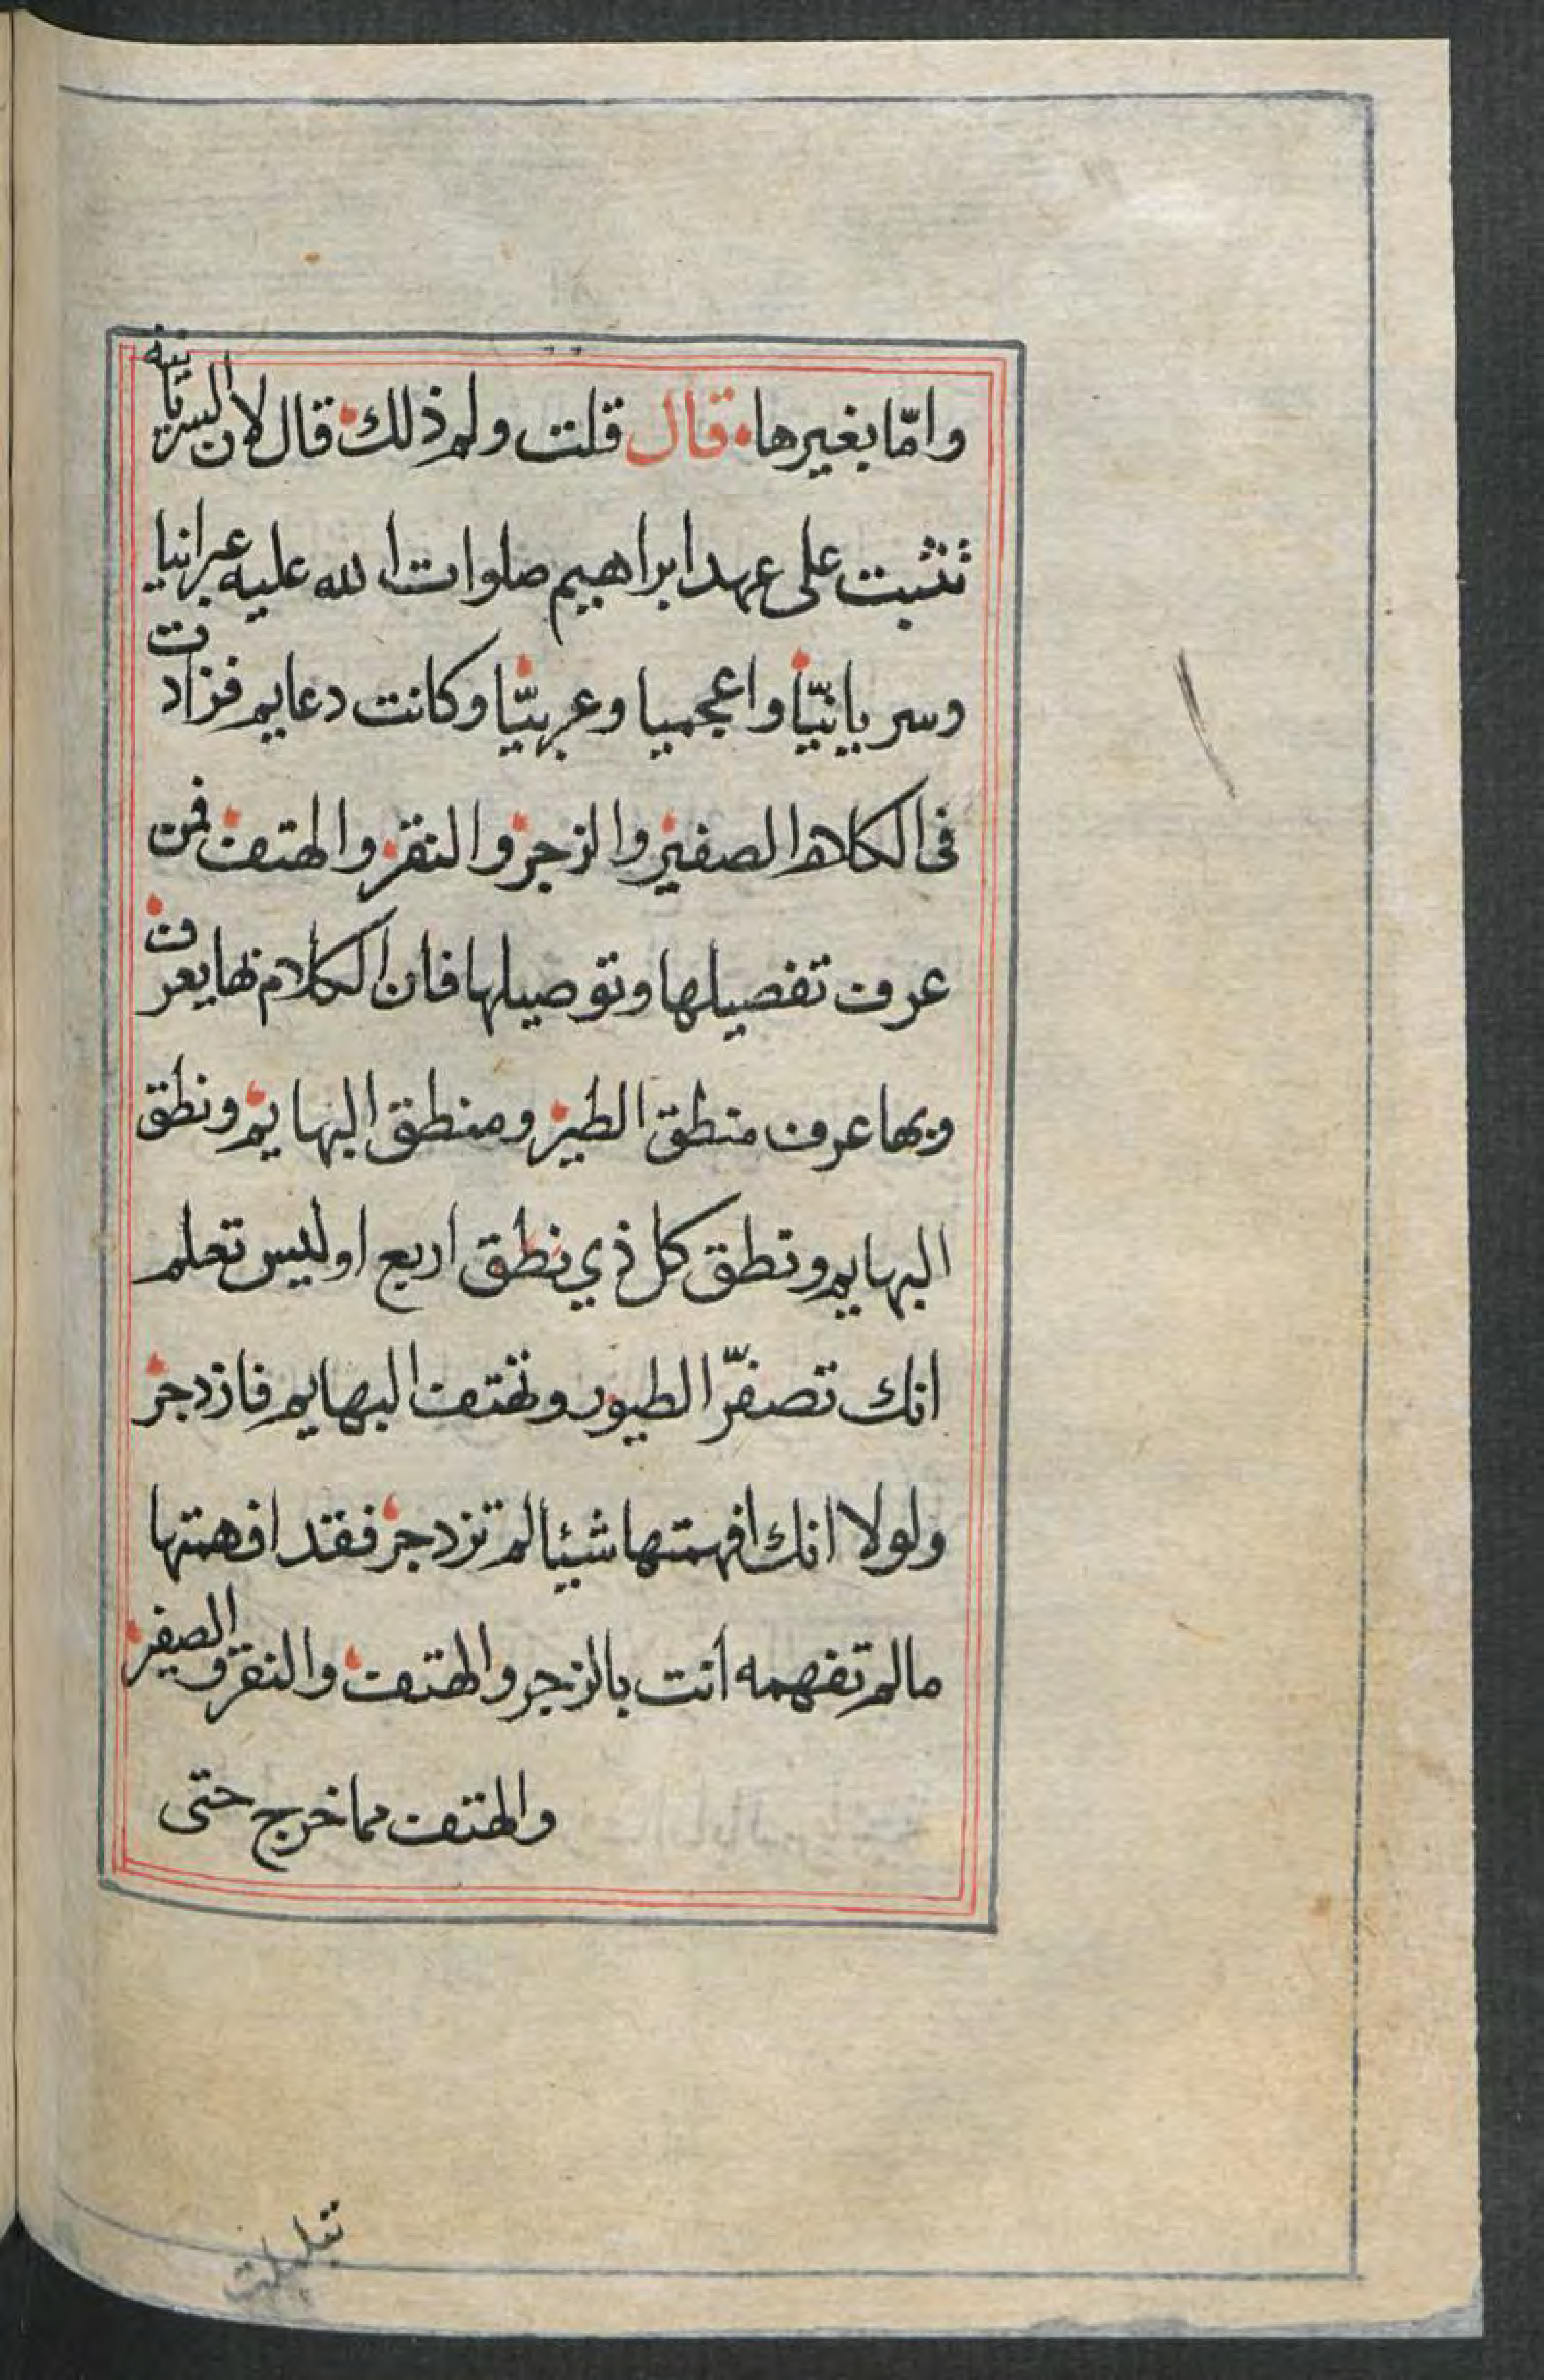 وامّا بغيرها قال قلت ولم ذلك قال لان السريانية
تثبت على عهد ابراهيم صلوات الله عليه عبرانيا
وسريانيّا واعجميا وعربيّا وكانت دعايم فزادت
فى الكلام الصفير والزجر والنقر والهتف فمن
عرف تفصيلها وتوصيلها فان الكلام بها يعرف
وبها عرف منطق الطير ومنطق البهايم ونطق
البهايم ونطق كل ذي نطق اربع اوليس تعلم
انك تصفرّ الطيور وتهتف البهايم فازدجر
ولولا انك افهمتها شيئا لم تزدجر فقد افهمتها
مالم تفهمه أنت بالزجر والهتف والنقر والصفير
والهتف مما خرج حتى
تبلبلت